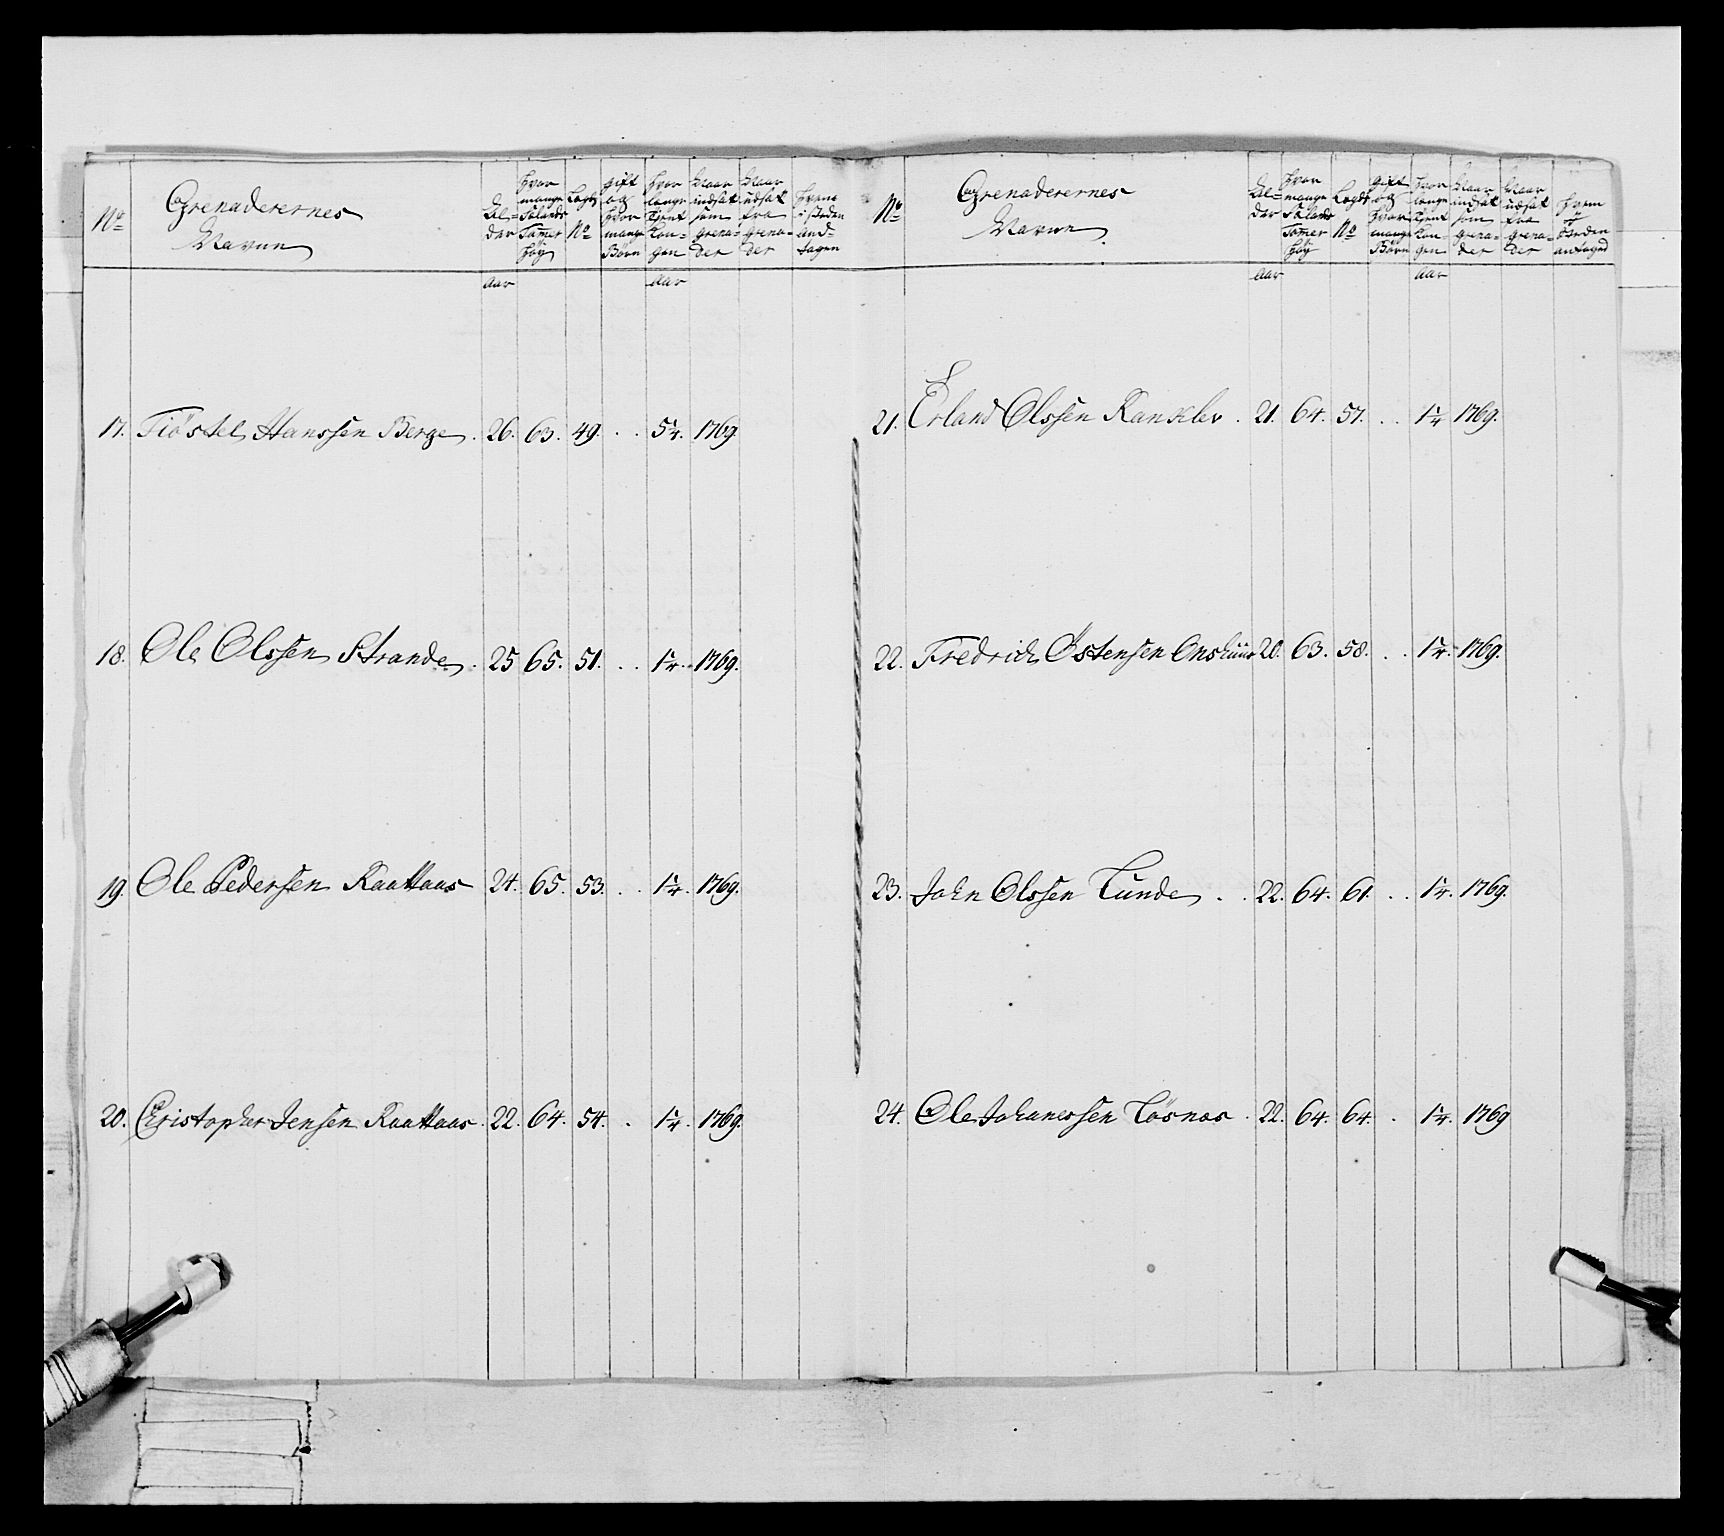 No
Grenaderernes
Navne
Al=
der
hvor
mange
Siælands
Tom̃er
høy
Lægds
No
gift
og
hvor
mange
Børn
hvor
længe
tient
Kon=
gen
Naar
indsat
som
grena=
der
Naar
udsat
fra
grena=
der
hvem
i steden
and=
tagen
Aar
Aar
17. Tiøstel Hanssen Berge . 26. 63. 49. . . 5 1/4. 1769.
18. Ole Olssen Strande . 25 65. 51. . . 1 1/4. 1769.
19. Ole Pedersen Raattaas 24. 65. 53. . . 1 1/4. 1769.
20. Christopher Jensen Raattaas . 22. 64. 54. . 1 1/4. 1769.
No
Grenaderernes
Navne
Al=
der
hvor
mange
Siælands
Tom̃er
høy
Lægds
No
gift
og
hvor
mange
Børn
hvor
længe
tient
Kon
gen
Naar
indsat
som
grena=
der
Naar
udsat
fra
grena=
der
hvem
i
steden
antaged
Aar
Aar
21. Erland Olssen Ranklev . 21. 64. 57. . . 1 1/4 1769.
22. Fredrich Østensen Onshuus 20. 63. 58. . . 1 1/4. 1769.
23. John Olssen Lunde . . 22. 64. 61. . . 1 1/4. 1769.
24. Ole Johanessen Løsnæs . 22. 64. 64. . 1 1/4. 1769